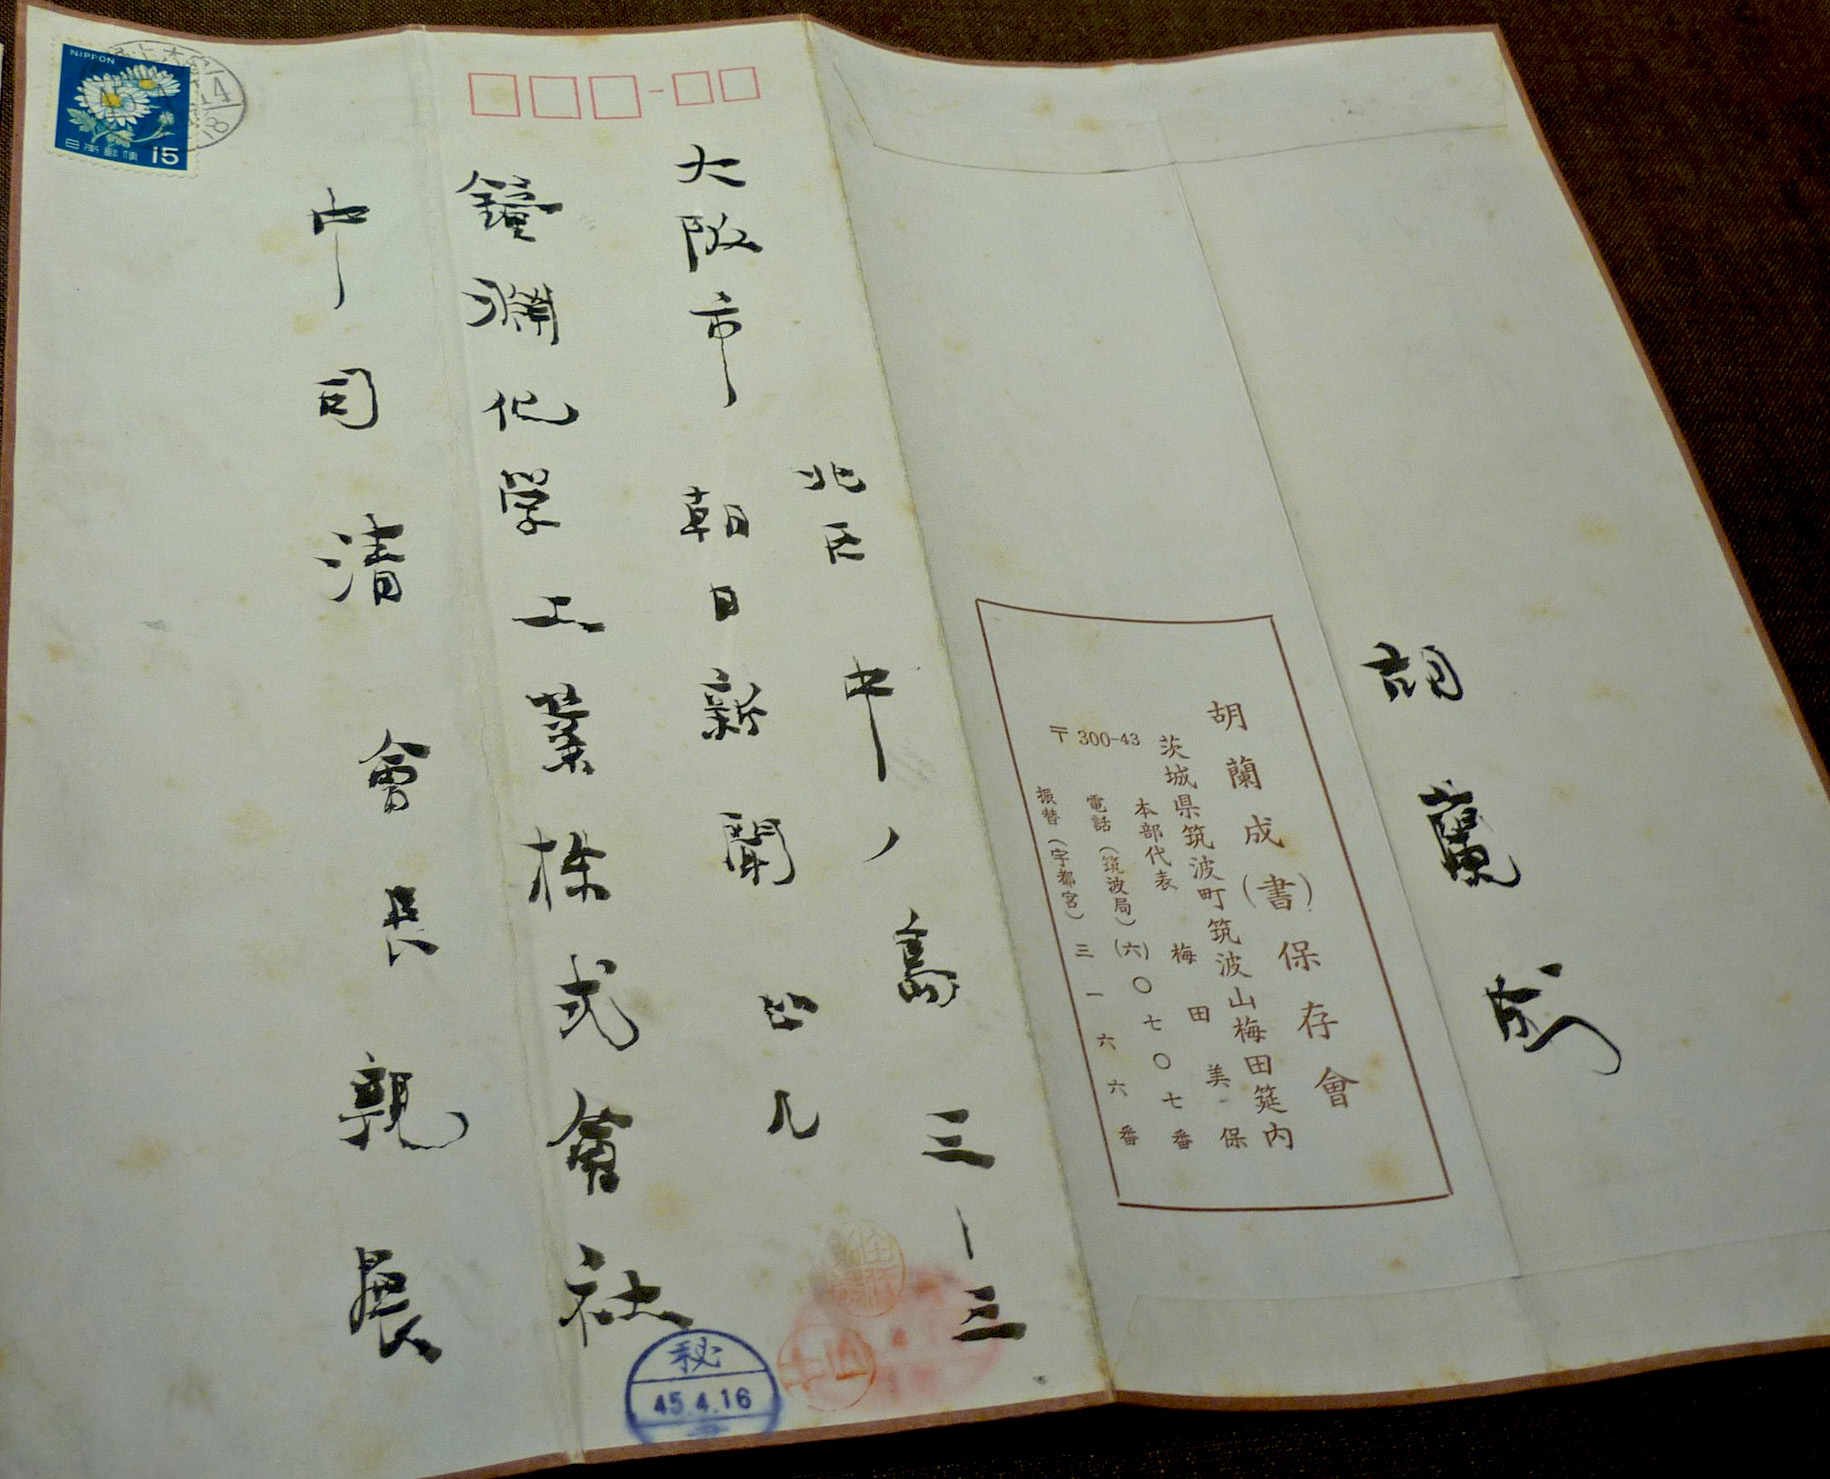 胡蘭成
胡蘭成(書)保存會
茨城県筑波町筑波山梅田筵内
本部代表 梅田美保
〒300-43
電話(筑波局)(六)〇七〇七番
振替(宇都宮)三一六六番
大阪市 北区 中ノ島 三-三
朝日新聞ビル
鐘淵化学工業株式會社
中司清 會長 親展
NIPPON
日本郵便 15
秘
45.4.16